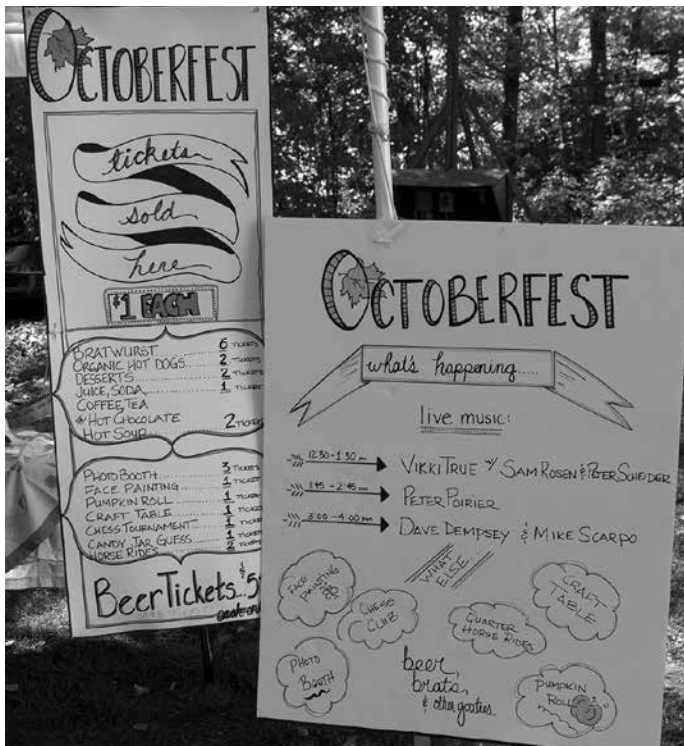 OCTOBERFEST
tickets
sold
here
$1 EACH
BRATWURST 6 TICKETS
ORGANIC HOT DOGS... 2 TICKETS
DESSERTS 2 TICKETS
JUICE, SODA 1 TICKET
COFFEE, TEA
HOT CHOCOLATE 2 TICKETS
HOT SOUP
PHOTO BOOTH 3 TICKETS
FACE PAINTING 1 TICKET
PUMPKIN ROLL 1 TICKET
CRAFT TABLE 1 TICKET
CHESS TOURNAMENT 1 TICKET
CANDY JAR GUESS 1 TICKET
HORSE RIDES 2 TICKETS
Beer Tickets...$5
OCTOBERFEST
what's happening.....
live music:
12:30-1:30 pm VIKKI TRUE w/ SAM ROSEN & PETER SCHEIDER
1:45-2:45 pm PETER POIRIER
3:00-4:00 pm DAVE DEMPSEY & MIKE SCARPO
WHAT
ELSE
FACE
PAINTING
CHESS
CLUB
QUARTER
HORSE RIDES
CRAFT
TABLE
PHOTO
BOOTH
beer,
brats,
& other goodies
PUMPKIN
ROLL